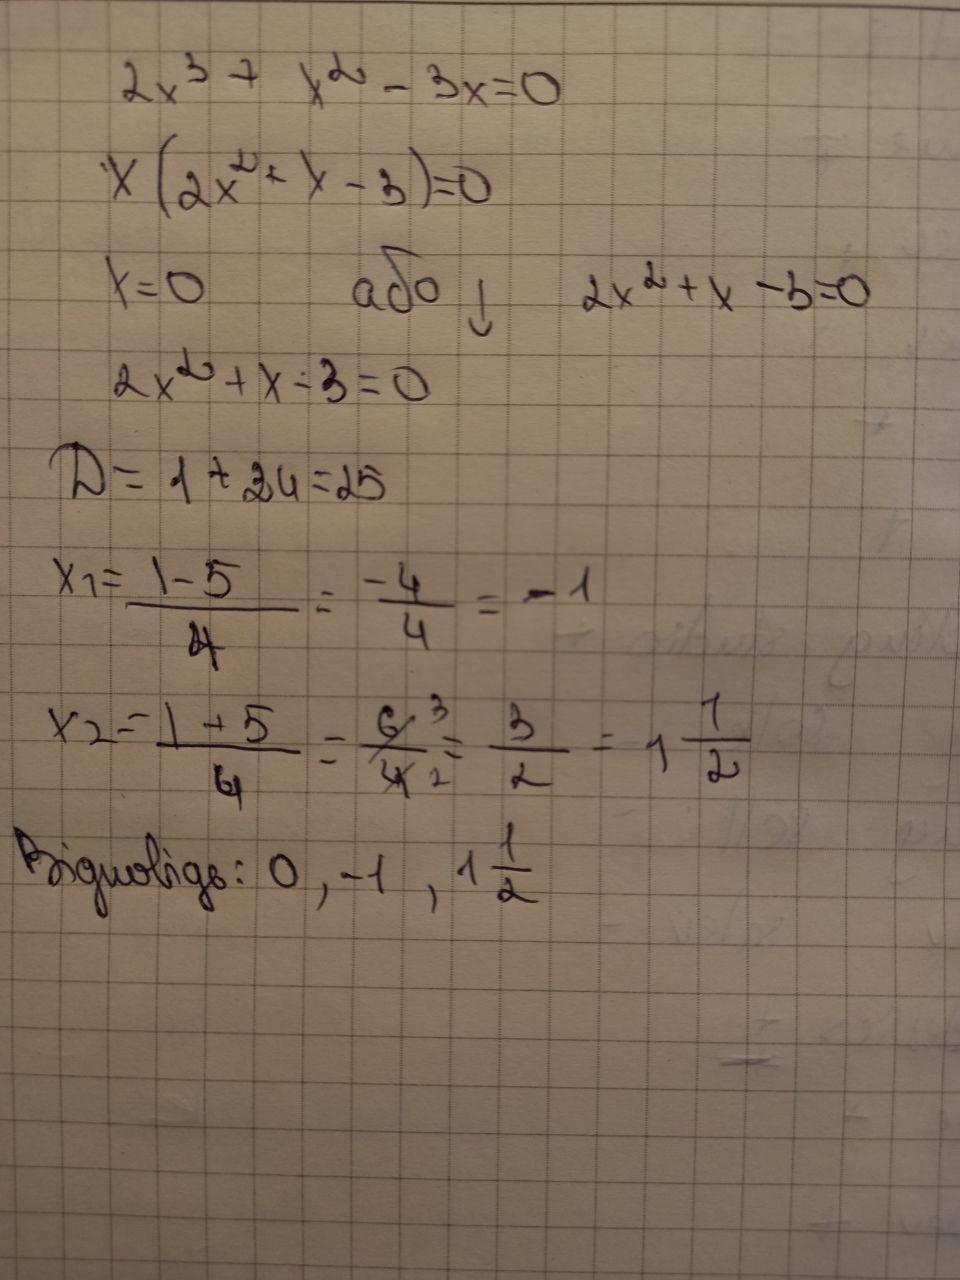 2x³ + x² - 3x = 0
x(2x² + x - 3) = 0
x = 0 або ↓ 2x² + x - 3 = 0
2x² + x - 3 = 0
D = 1 + 24 = 25
x₁ = (1 - 5)/4 = -4/4 = -1
x₂ = (1 + 5)/4 = 6/4 = 3/2 = 1 1/2
Відповідь: 0, -1, 1 1/2